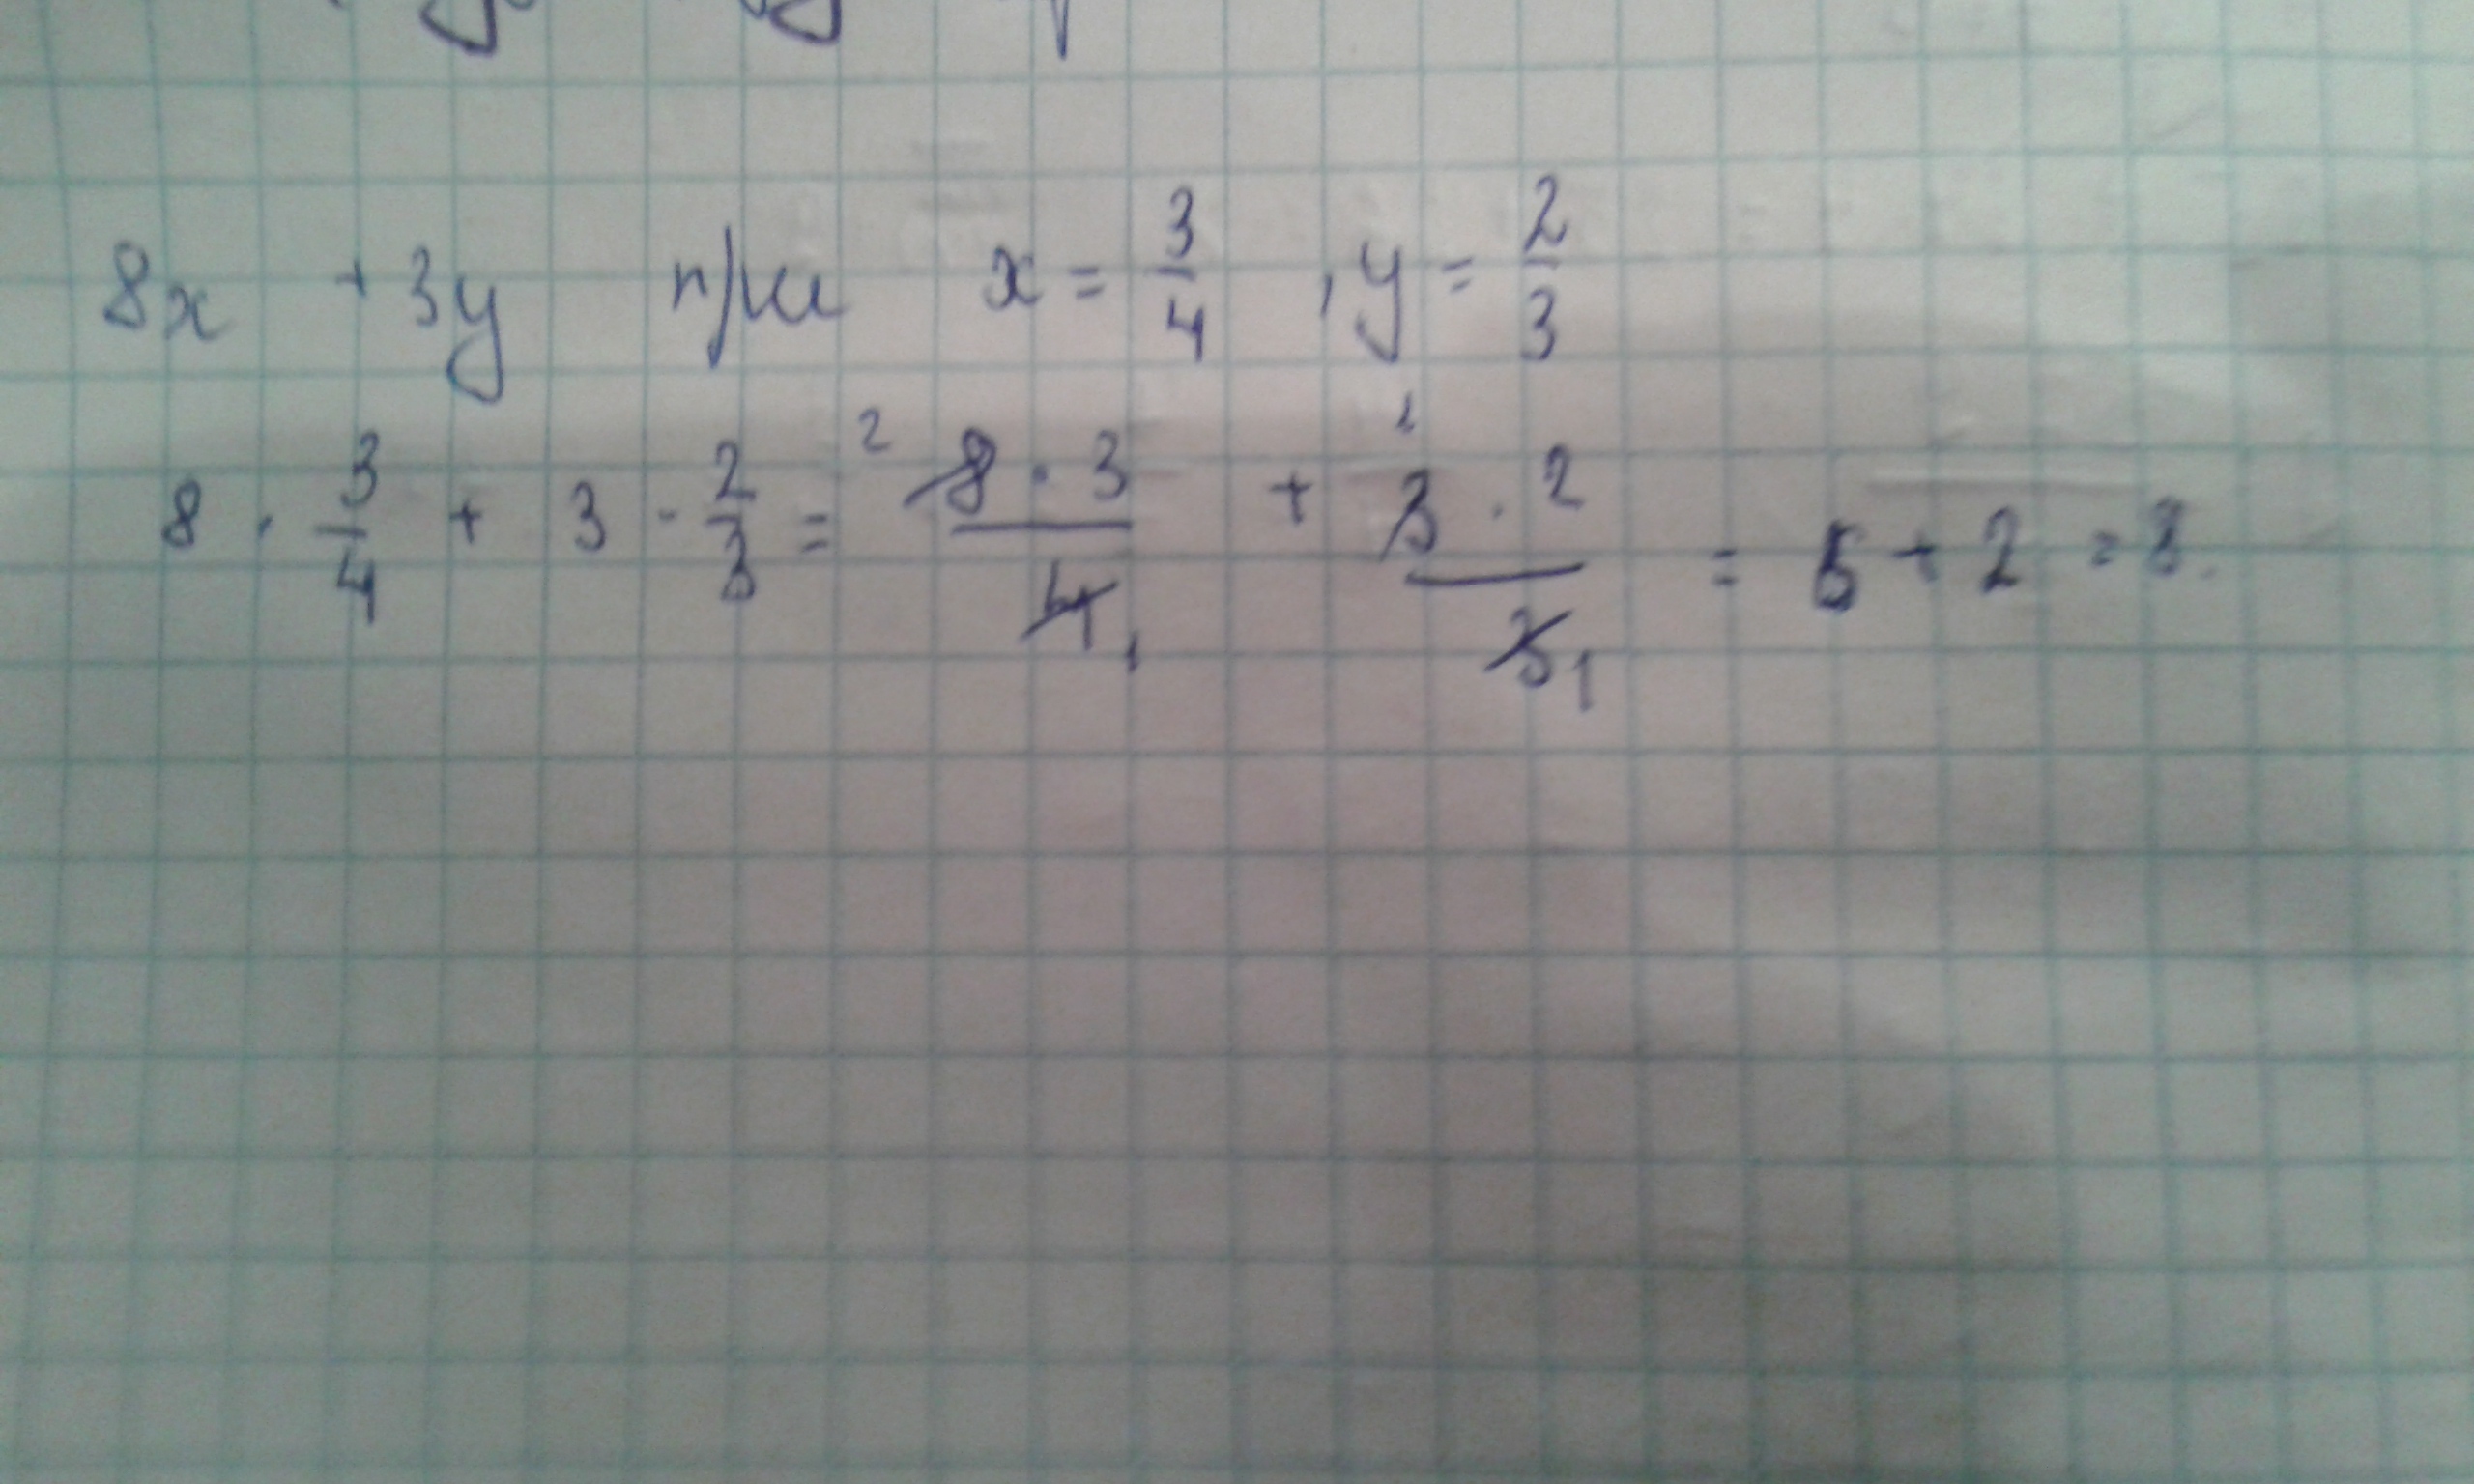 8x + 3y при x = 3/4 , y = 2/3
8 · 3/4 + 3 · 2/3 = ² 8 · 3 / 4 ₁ + ¹ 3 · 2 / 3 ₁ = 6 + 2 = 8.